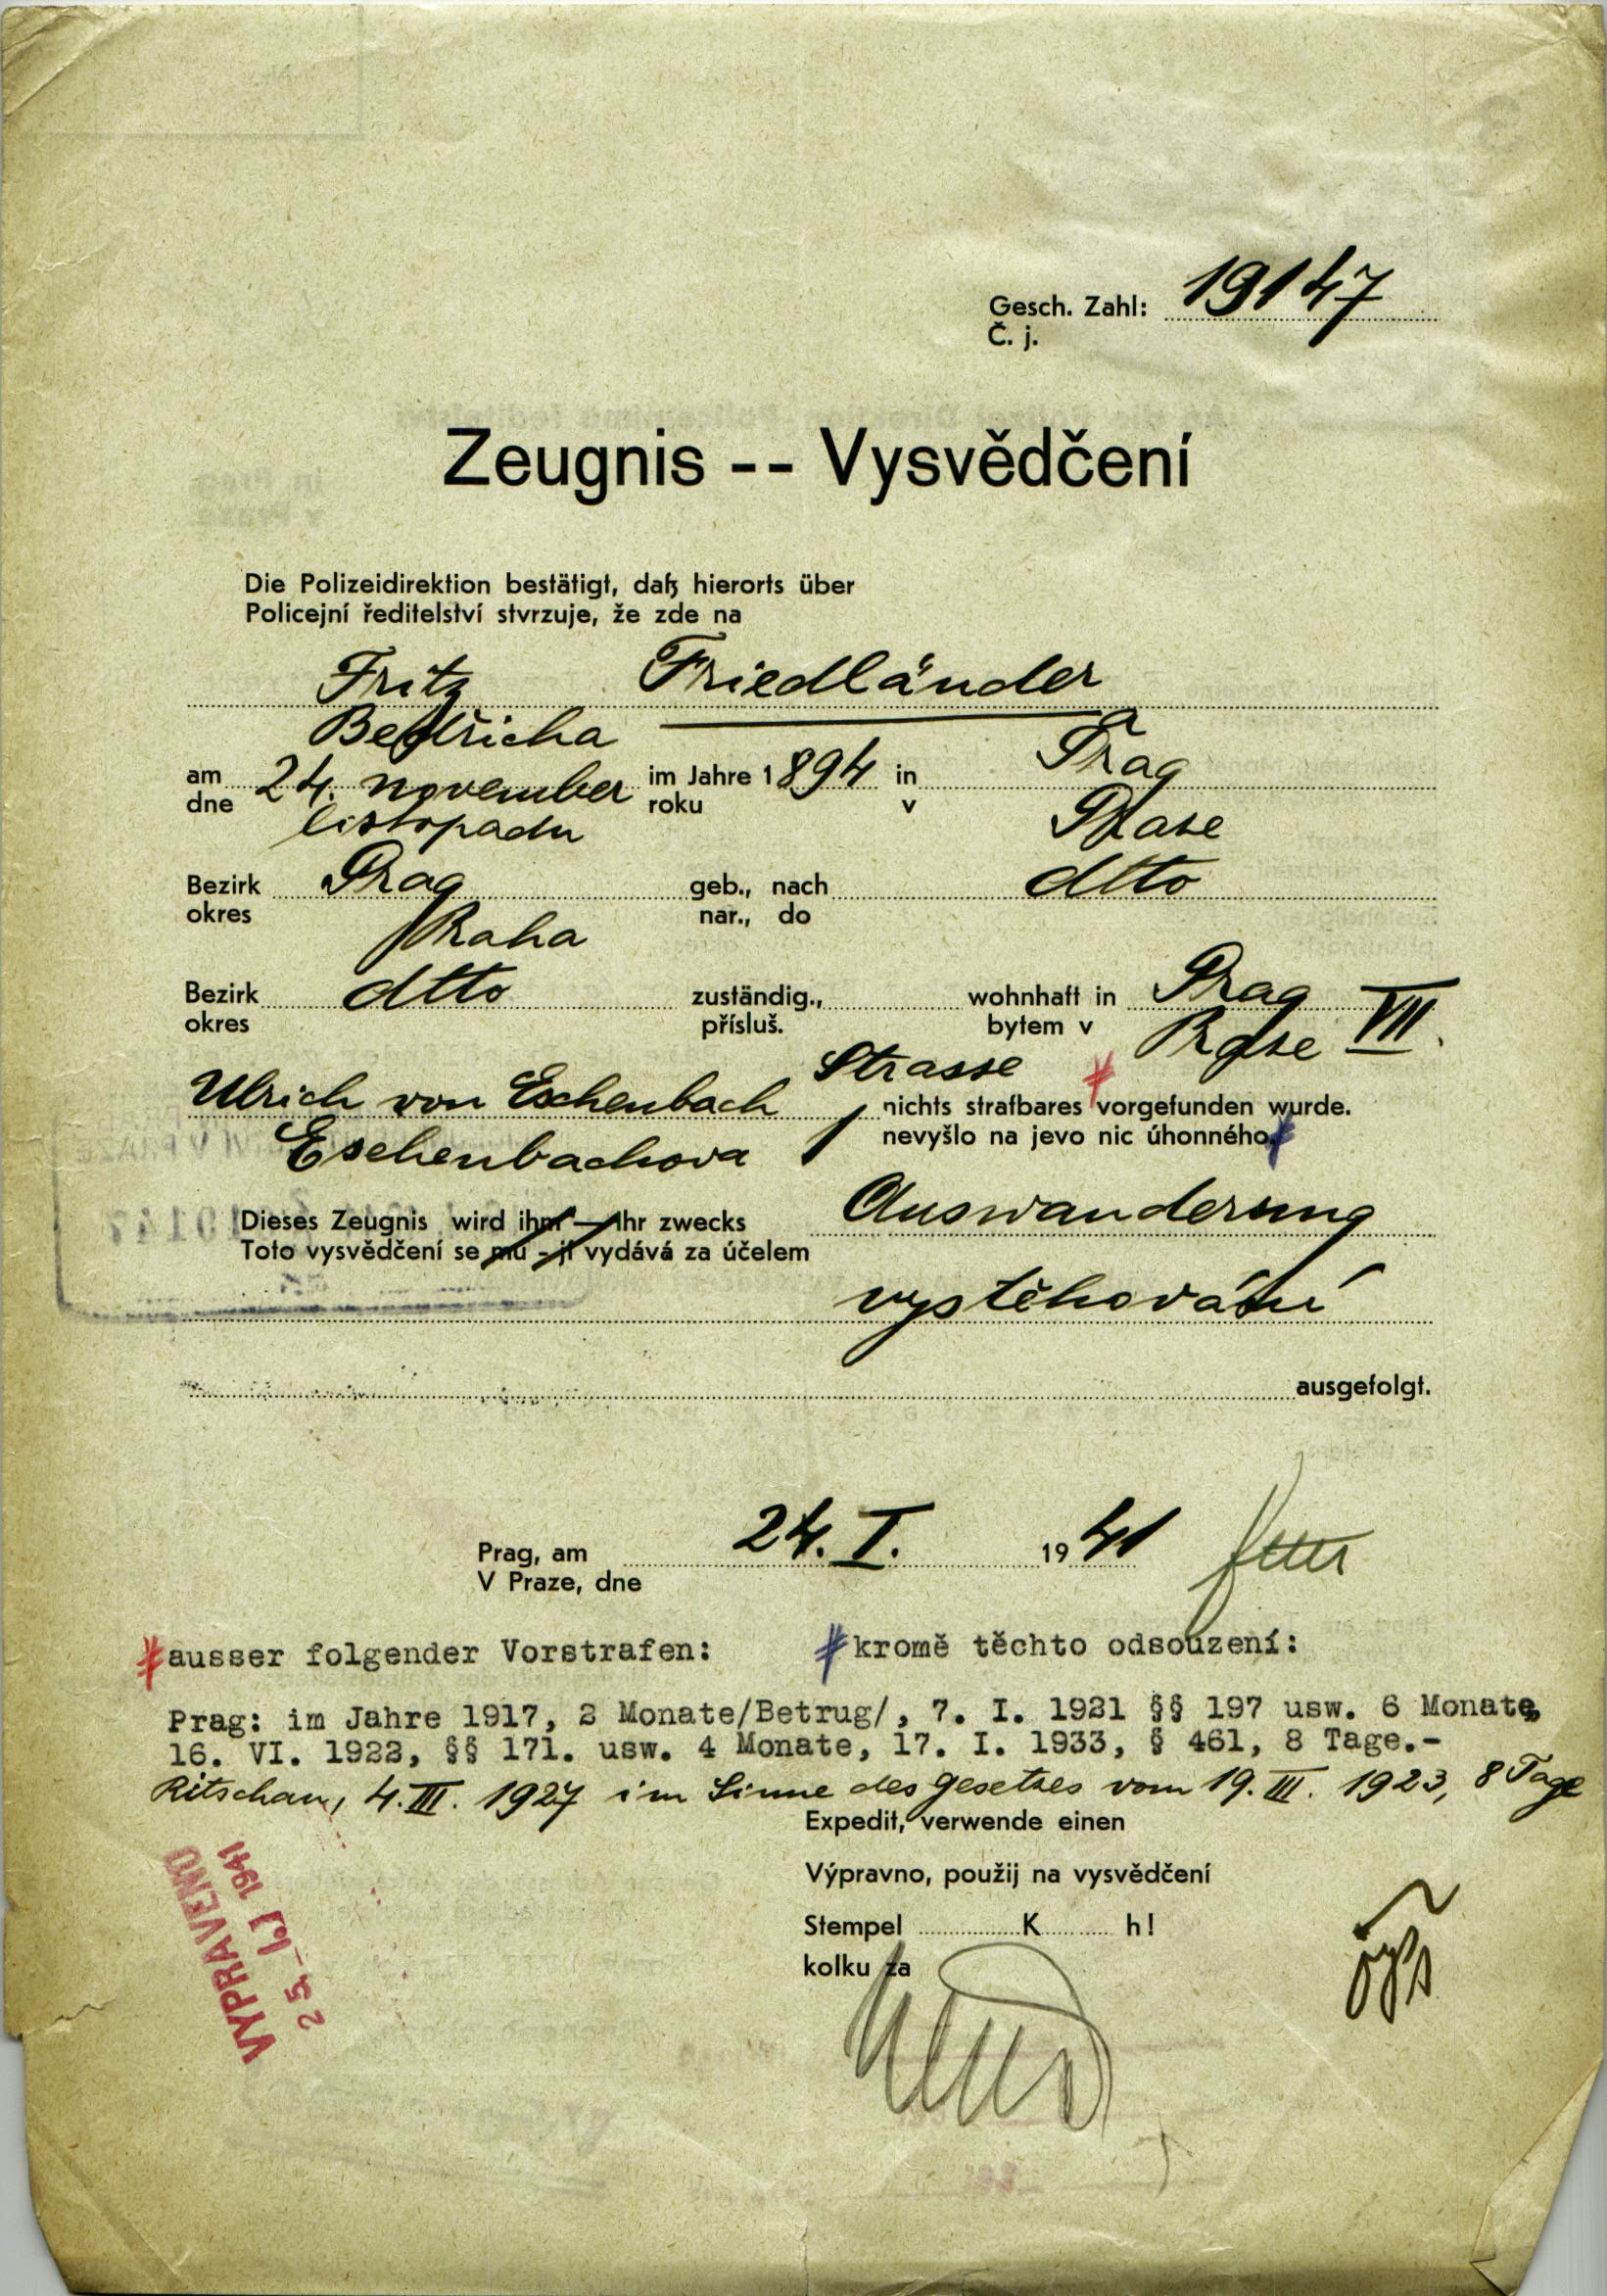 Gesch. Zahl: 19147
Č. j.
Zeugnis -- Vysvědčení
Die Polizeidirektion bestätigt, daß hierorts über
Policejní ředitelství stvrzuje, že zde na
Fritz Friedländer
Bedřicha
am 24. november im Jahre 1894 in Prag
dne listopadu roku v Praze
Bezirk Prag geb., nach dtto
okres Praha nar., do
Bezirk dtto zuständig., wohnhaft in Prag VII.
okres přísluš. bytem v Praze
Ulrich von Eschenbach Strasse nichts strafbares vorgefunden wurde.
Eschenbachova nevyšlo na jevo nic úhonného.
Dieses Zeugnis wird ihm — Ihr zwecks Auswanderung
Toto vysvědčení se mu - jí vydává za účelem
vystěhování
ausgefolgt.
Prag, am 24. I. 1941
V Praze, dne
ausser folgender Vorstrafen: kromě těchto odsouzení:
Prag: im Jahre 1917, 2 Monate/Betrug/, 7. I. 1921 §§ 197 usw. 6 Monate,
16. VI. 1922, §§ 171. usw. 4 Monate, 17. I. 1933, § 461, 8 Tage.-
Ritschan, 4. III. 1927 im Sinne des Gesetzes vom 19. III. 1923, 8 Tage
Expedit, verwende einen
Výpravno, použij na vysvědčení
Stempel K h!
kolku za
VYPRAVENO
25. I. 1941